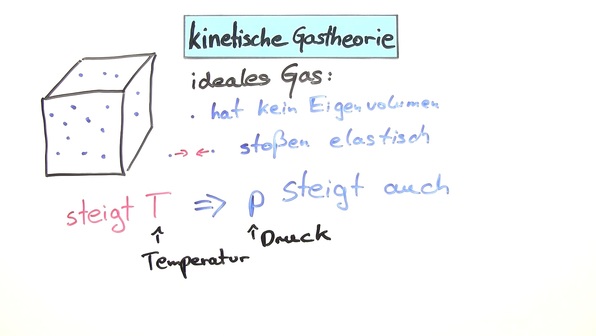 kinetische Gastheorie
ideales Gas:
· hat kein Eigenvolumen
stoßen elastisch
steigt T ⇒ p steigt auch
↑ ↑ Druck
Temperatur